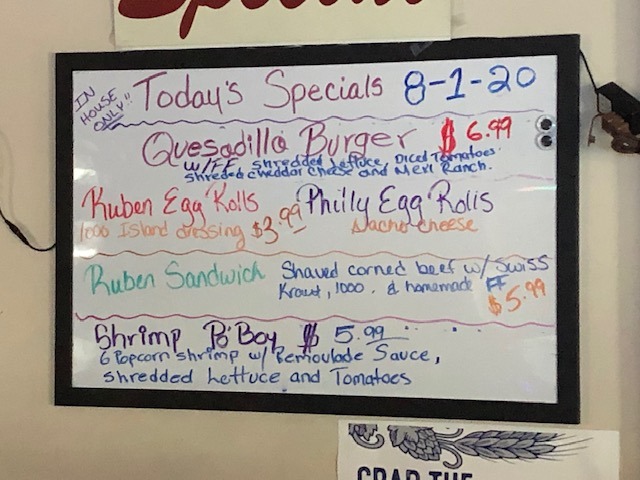 Specials
IN HOUSE ONLY!!
Today's Specials 8-1-20
Quesadilla Burger $6.99
w/FF, shredded Lettuce, Diced Tomatoes
shreded cheddar cheese and Mexi Ranch.
Ruben Egg Rolls Philly Egg Rolls
1000 Island dressing $3.99 Nacho cheese
Ruben Sandwich Shaved corned beef w/ Swiss
Kraut, 1000. & homemade FF
$5.99
Shrimp Po'Boy $5.99
6 Popcorn shrimp w/ Remoulade Sauce,
shredded Lettuce and Tomatoes
GRAB THE